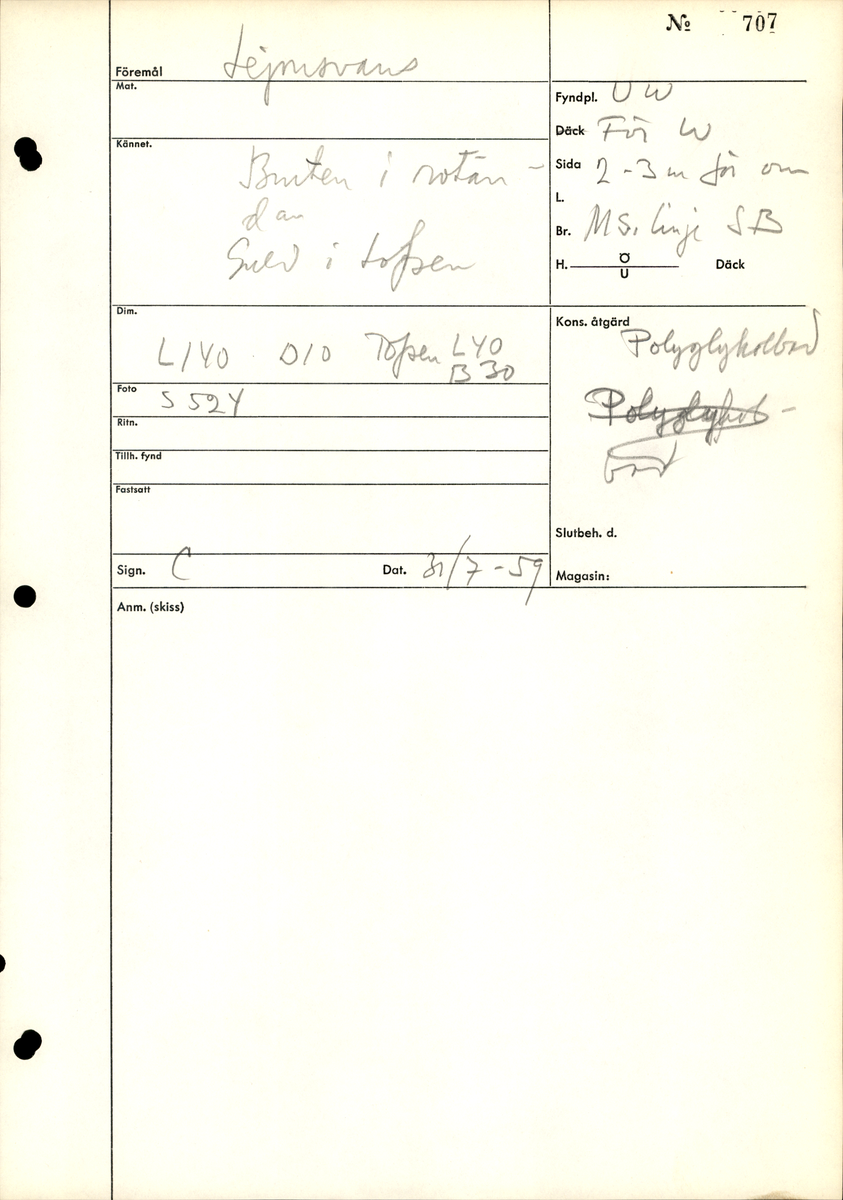 № 707
Föremål Lejonsvans
Mat.
Kännet.
Bruten i rotän-
dan
Guld i tofsen
Dim.
L 140 D 10 Tofsen L 40
B 30
Foto S 524
Ritn.
Tillh. fynd
Fastsatt
Sign. C Dat. 31/7-59
Fyndpl. UW
Däck För W
Sida 2-3 m för om
L.
Br. MS. linje SB
H. Ö Däck
U
Kons. åtgärd
Polyglykolbad
Polyglykol-
bad
Slutbeh. d.
Magasin:
Anm. (skiss)